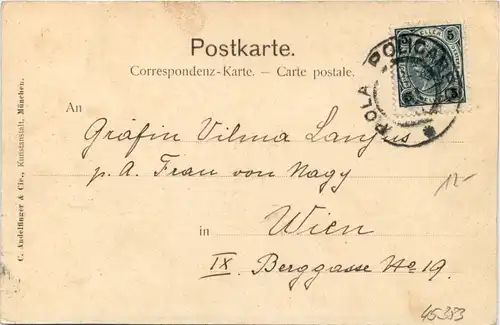 Postkarte.
Correspondenz-Karte. – Carte postale.
An
Gräfin Vilma Lanjus
p. A. Frau von Nagy
in Wien
IX. Berggasse No 19.
C. Andelfinger & Cie., Kunstanstalt. München.
5 5
POLA
POLICARPO
12-
45353